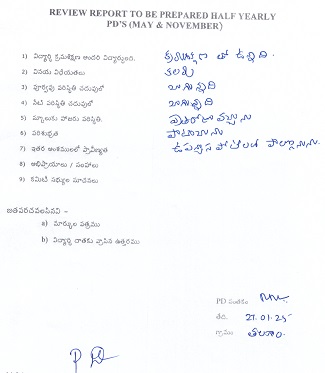 REVIEW REPORT TO BE PREPARED HALF YEARLY
PD'S (MAY & NOVEMBER)
1) విద్యార్థి క్రమశిక్షణ అందరి విద్యార్థులది. క్రమశిక్షణ తో ఉన్నది.
2) వినయ విధేయతలు కలవు
3) పూర్వపు పరిస్థితి చదువులో బాగున్నది
4) నేటి పరిస్థితి చదువులో బాగున్నది
5) స్కూలుకు హాజరు పరిస్థితి.
6) పరిశుభ్రత
7) ఇతర అంశములలో ప్రావీణ్యత
8) అభిప్రాయాలు / సలహాలు
9) కమిటీ సభ్యుల సూచనలు
జతపరచవలసినవి :-
a) మార్కుల పత్రము
b) విద్యార్థి దాతకు వ్రాసిన ఉత్తరము
PD సంతకం
తేది. 27.01.25
గ్రామం